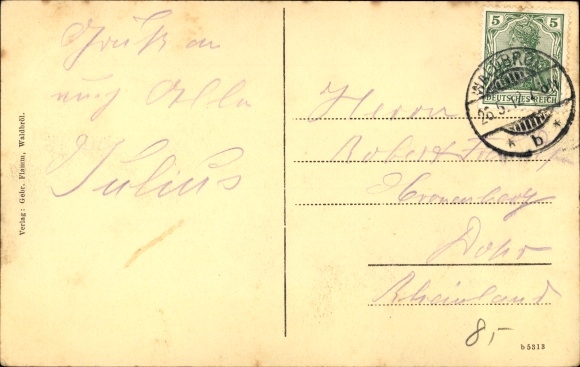 Gruß an
und Alle
Julius
Verlag: Gebr. Flamm, Waldbröl.
5 5
DEUTSCHES REICH
WALDBRÖL
26.5.12
* b *
Herrn
Robert
Cronenberg
Dohr
Rheinland
8,-
b5313